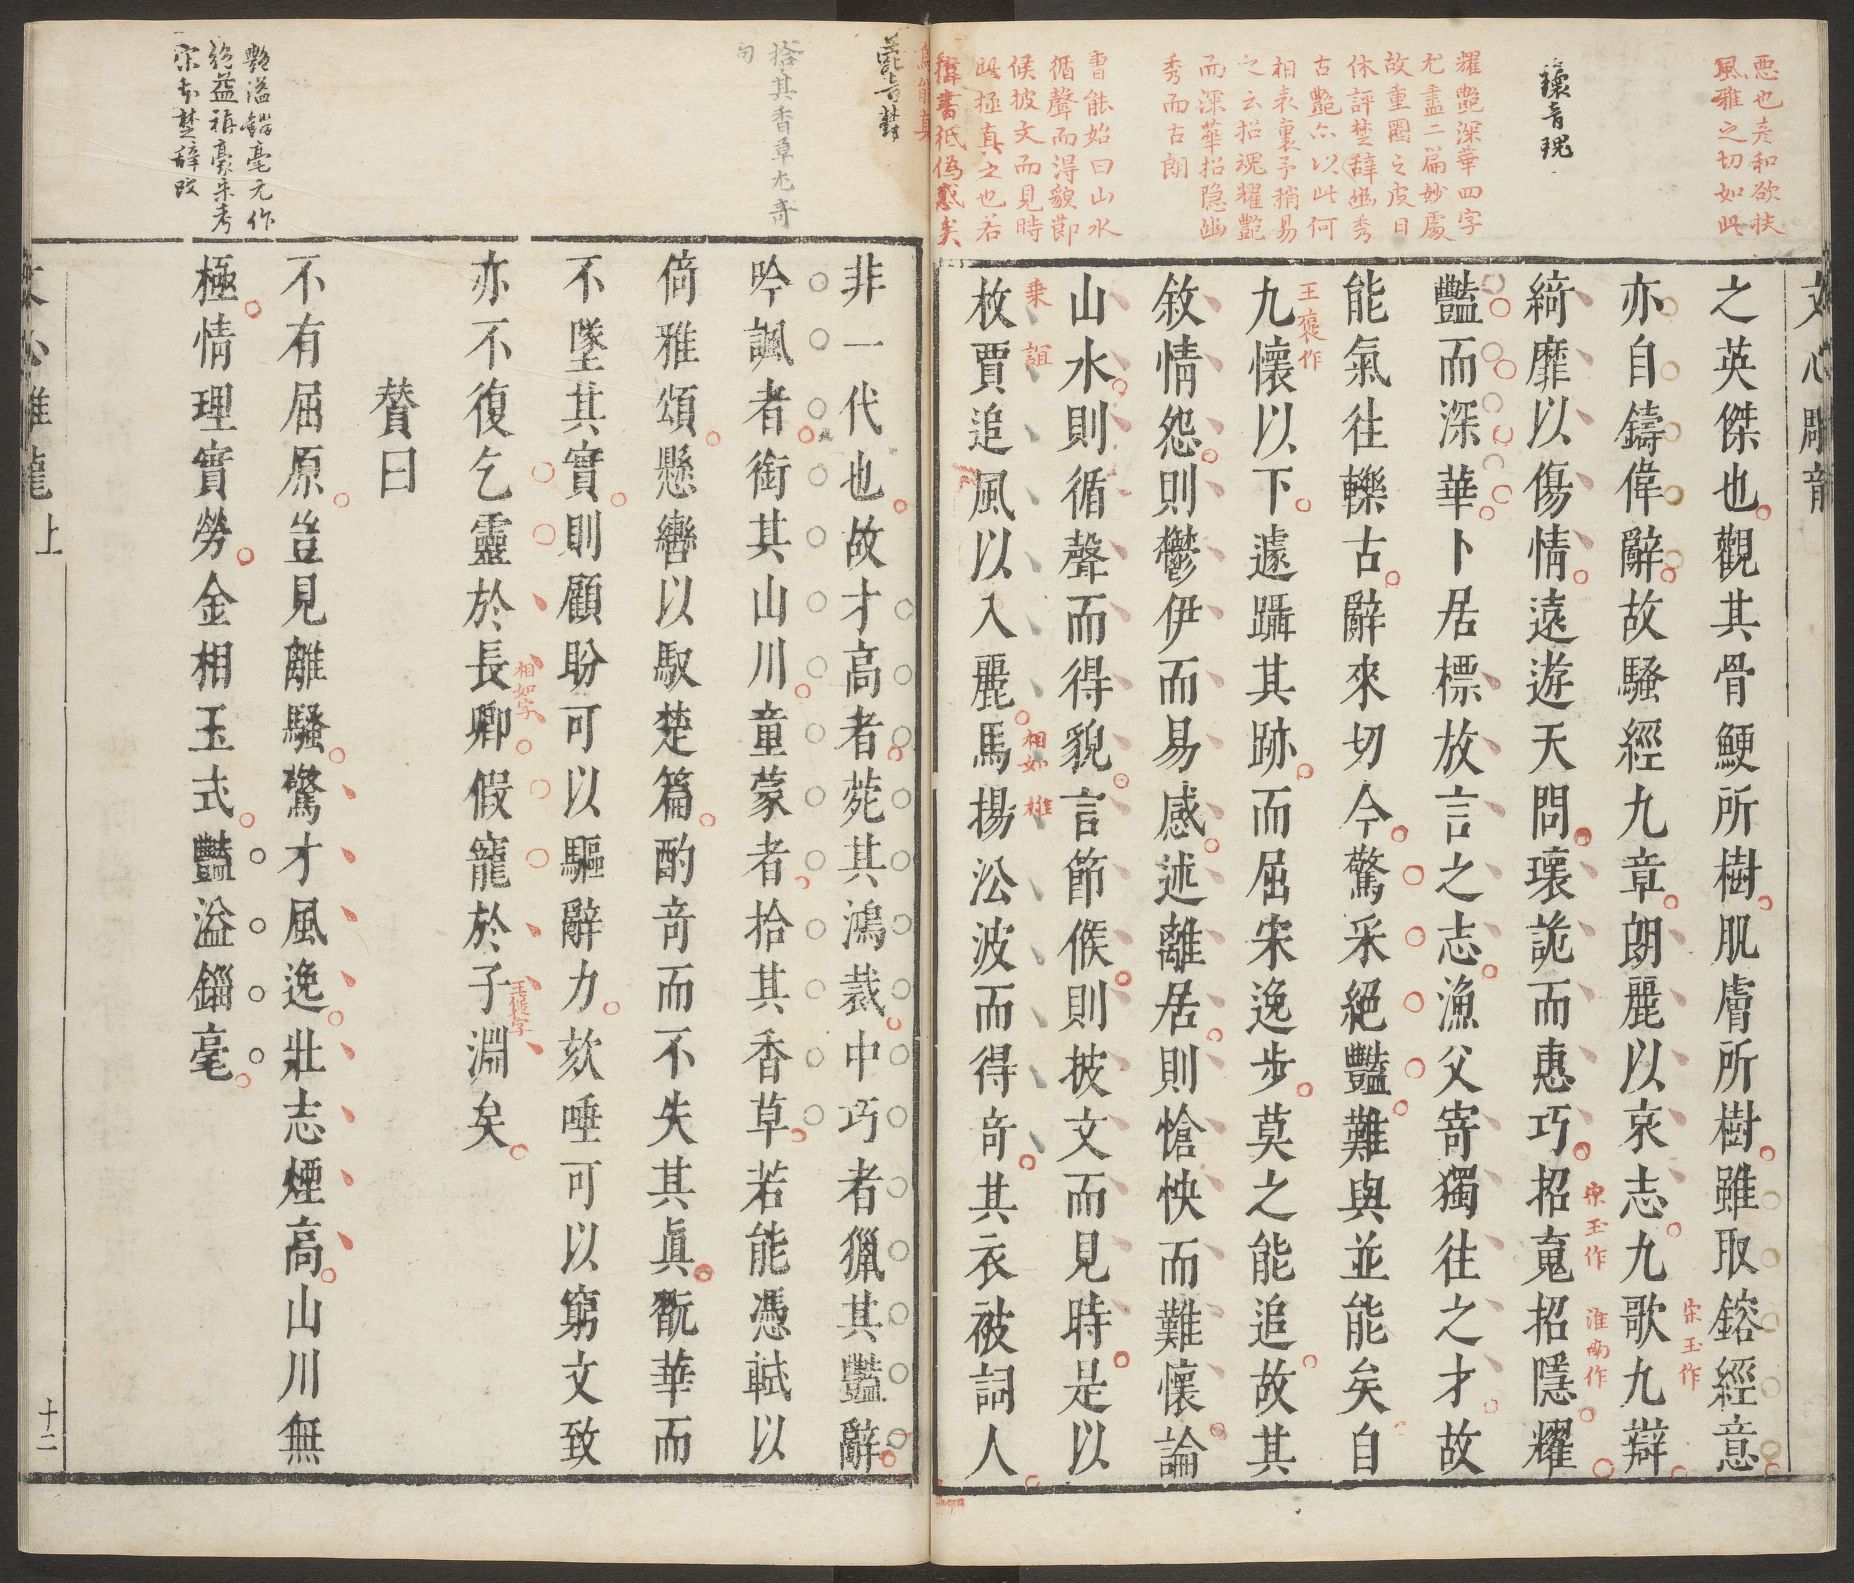 惡也妻和欲扶
風雅之切如此
瓌音瑰
耀艷深華四字
尤盡二篇妙處
故重圈之皮日
休評楚辭幽秀
古艷亦以此何
相表裏予稍易
之云招魂耀艷
而深華招隱幽
秀而古朗
曹能始曰山水
循聲而得貌節
候披文而見時
此極真之也若
之英傑也觀其骨鯁所樹肌膚所樹雖取鎔經意
亦自鑄偉辭故騷經九章朗麗以哀志九歌九辯
宋玉作
綺靡以傷情遠遊天問瓌詭而惠巧招䰟招隱耀
宋玉作
淮南作
豔而深華卜居標放言之志漁父寄獨往之才故
能氣往轢古辭來切今驚采絕豔難與並能矣自
九懷以下遽躡其跡而屈宋逸步莫之能追故其
王褒作
敘情怨則鬱伊而易感述離居則愴怏而難懷論
山水則循聲而得貌言節候則披文而見時是以
枚賈追風以入麗馬揚沿波而得奇其衣被詞人
乘 誼
相如 雄
拾其香草尤奇
句
非一代也故才高者菀其鴻裁中巧者獵其豔辭
吟諷者銜其山川童蒙者拾其香草若能憑軾以
倚雅頌懸轡以馭楚篇酌奇而不失其真翫華而
不墜其實則顧盼可以驅辭力欬唾可以窮文致
亦不復乞靈於長卿假寵於子淵矣
相如字
王褒字
贊曰
不有屈原豈見離騷驚才風逸壯志煙高山川無
極情理實勞金相玉式豔溢錙毫
豔溢錙毫元作
絕益稱豪朱考
宋本楚辭改
文心雕龍 上
十二